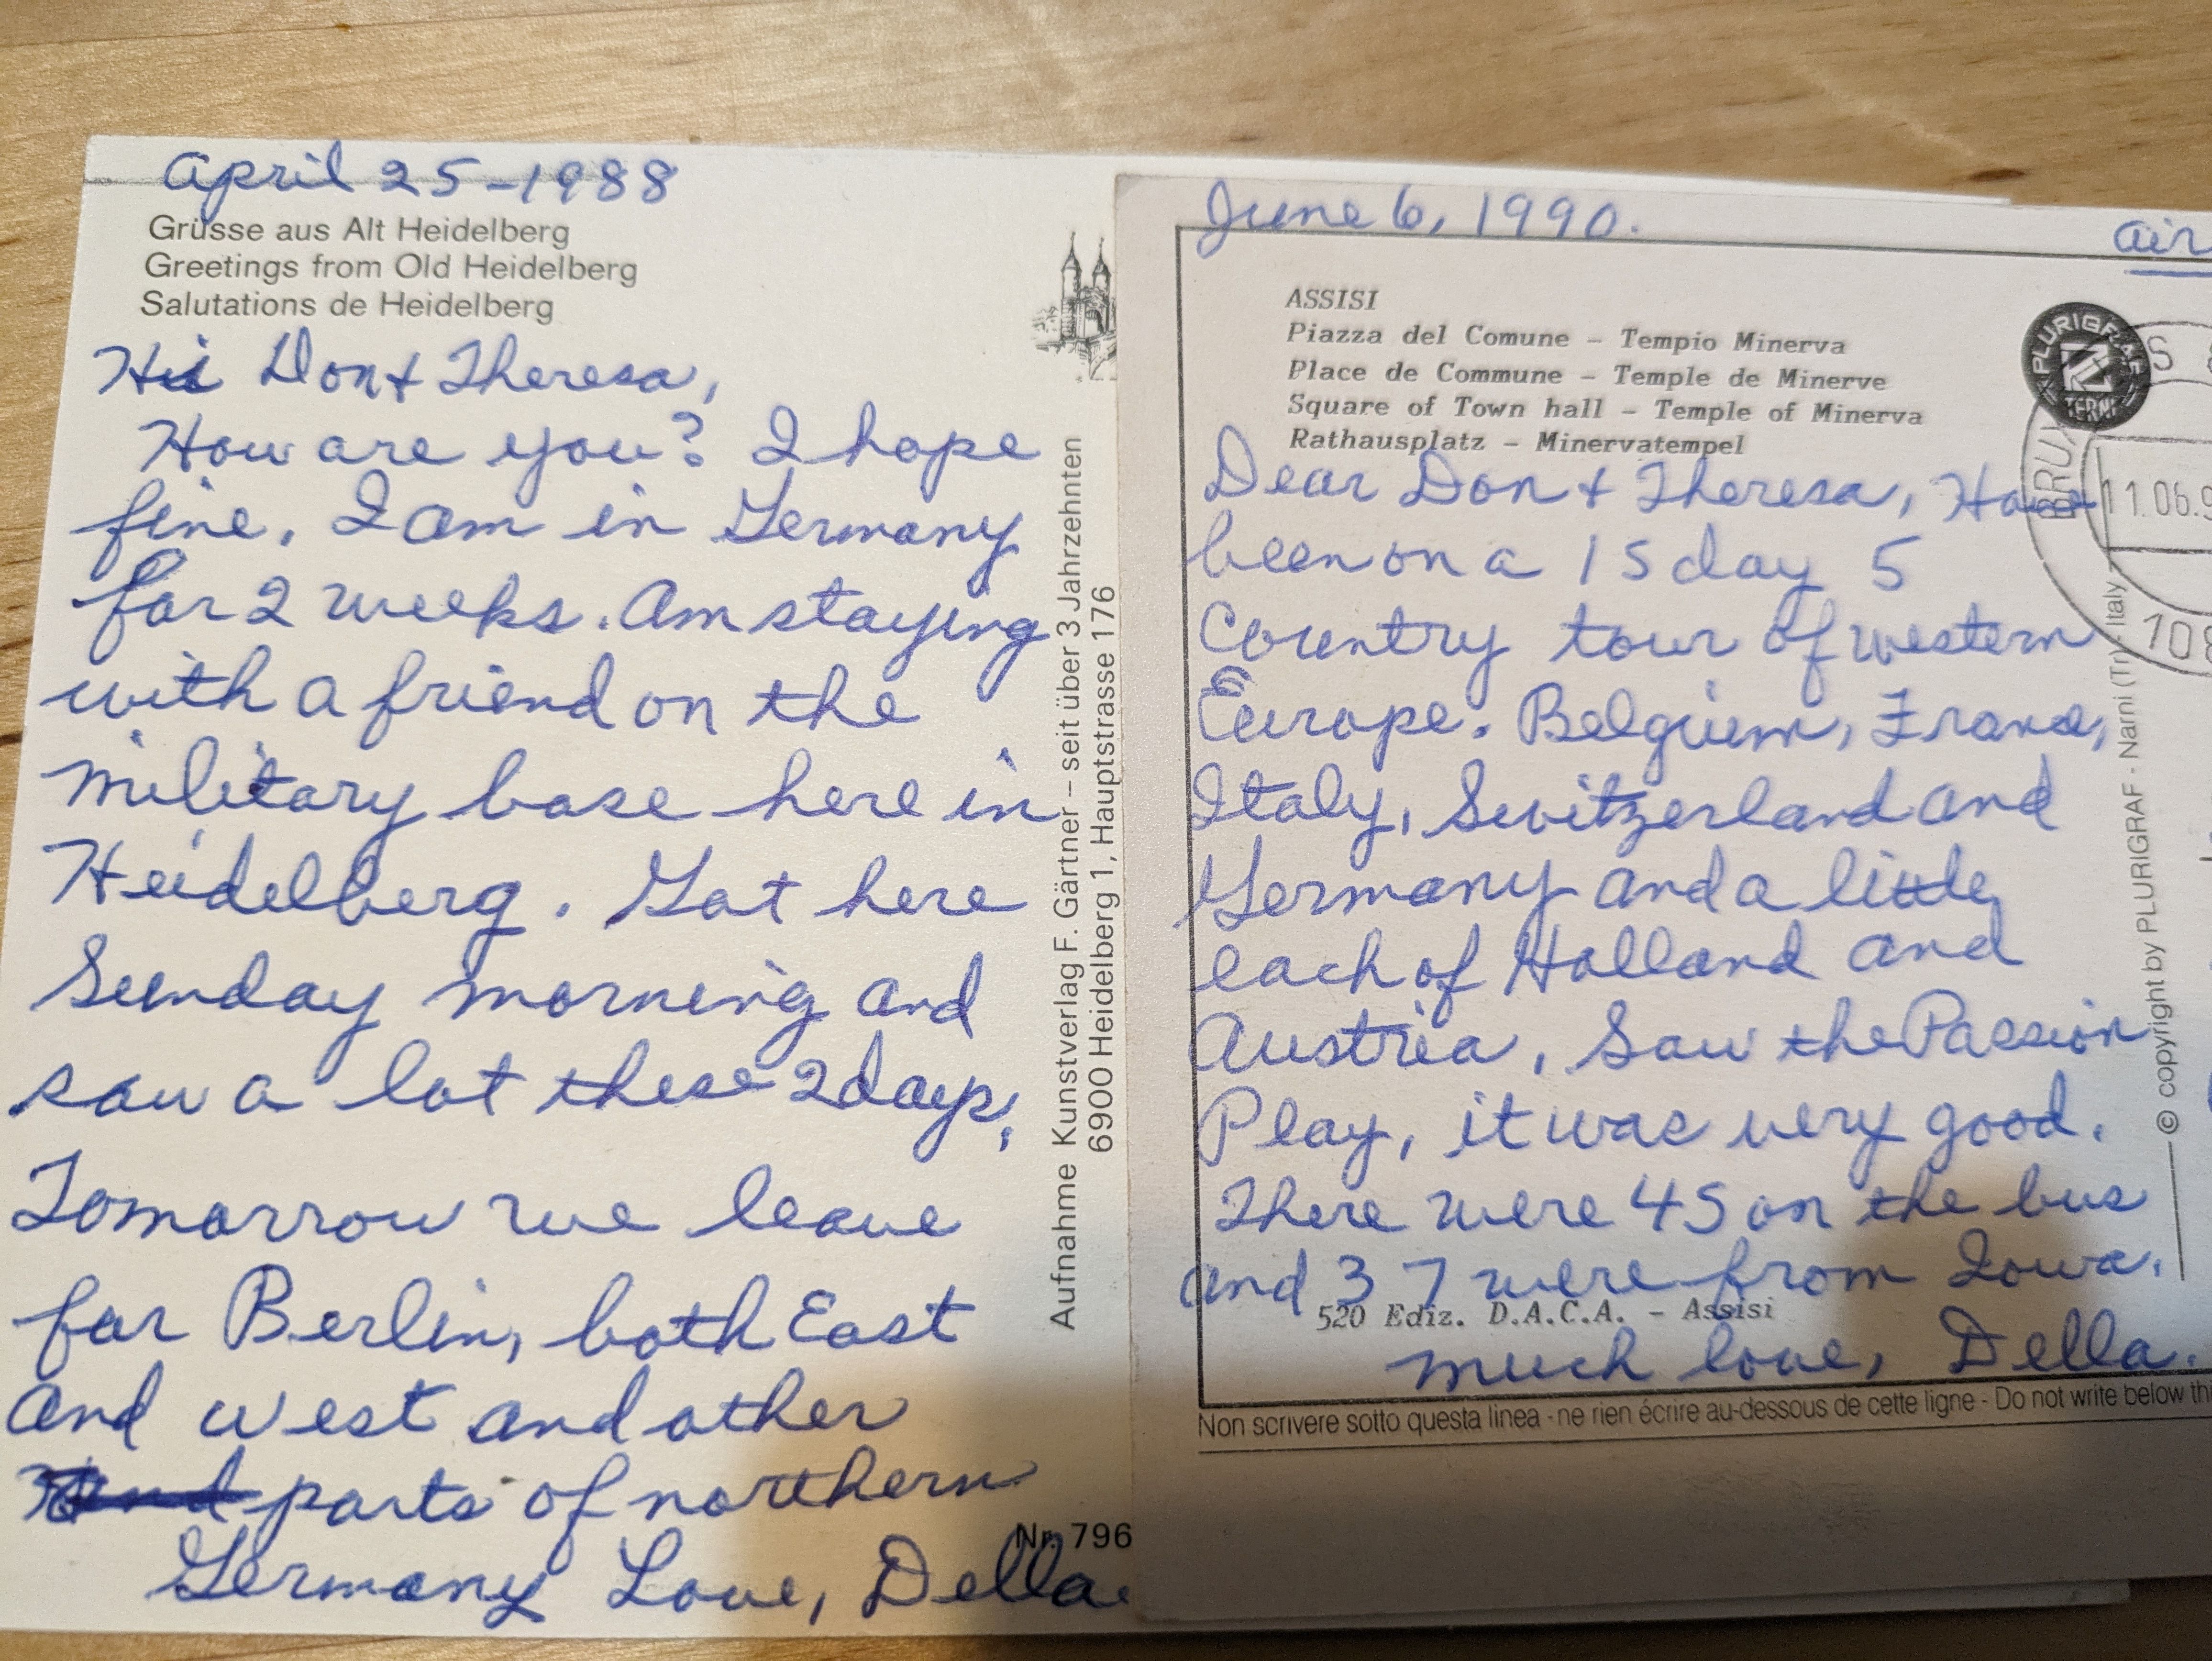 April 25-1988
Grüsse aus Alt Heidelberg
Greetings from Old Heidelberg
Salutations de Heidelberg
Hi Don + Theresa,
How are you? I hope
fine. I am in Germany
for 2 weeks. Am staying
with a friend on the
military base here in
Heidelberg. Got here
Sunday morning and
saw a lot these 2 days,
Tomorrow we leave
for Berlin, both East
and west and other
parts of northern
Germany Love, Della.
Nr. 796
Aufnahme Kunstverlag F. Gärtner – seit über 3 Jahrzehnten
6900 Heidelberg 1, Hauptstrasse 176
June 6, 1990.
air
ASSISI
Piazza del Comune – Tempio Minerva
Place de Commune – Temple de Minerve
Square of Town hall – Temple of Minerva
Rathausplatz – Minervatempel
PLURIGRAF
TERNI
BRUX
11.06.9
Dear Don + Theresa, Have
been on a 15 day 5
Country tour of western
Europe. Belguim, France,
Italy, Switzerland and
Germany and a little
each of Holland and
Austria, Saw the Passion
Play, it was very good.
There were 45 on the bus
and 37 were from Iowa.
520 Ediz. D.A.C.A. – Assisi
much love, Della.
Non scrivere sotto questa linea - ne rien écrire au-dessous de cette ligne - Do not write below thi
© copyright by PLURIGRAF - Narni (Tr) - Italy